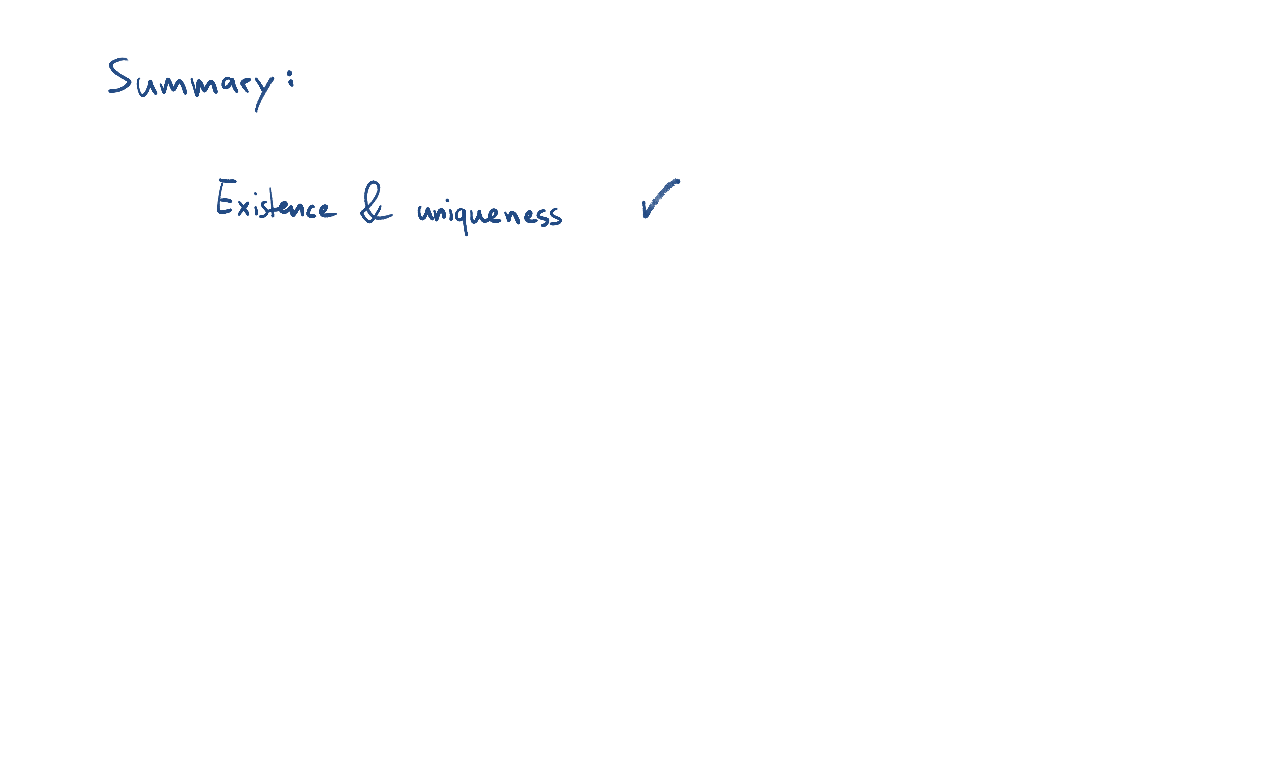 Summary:
Existence & uniqueness ✓